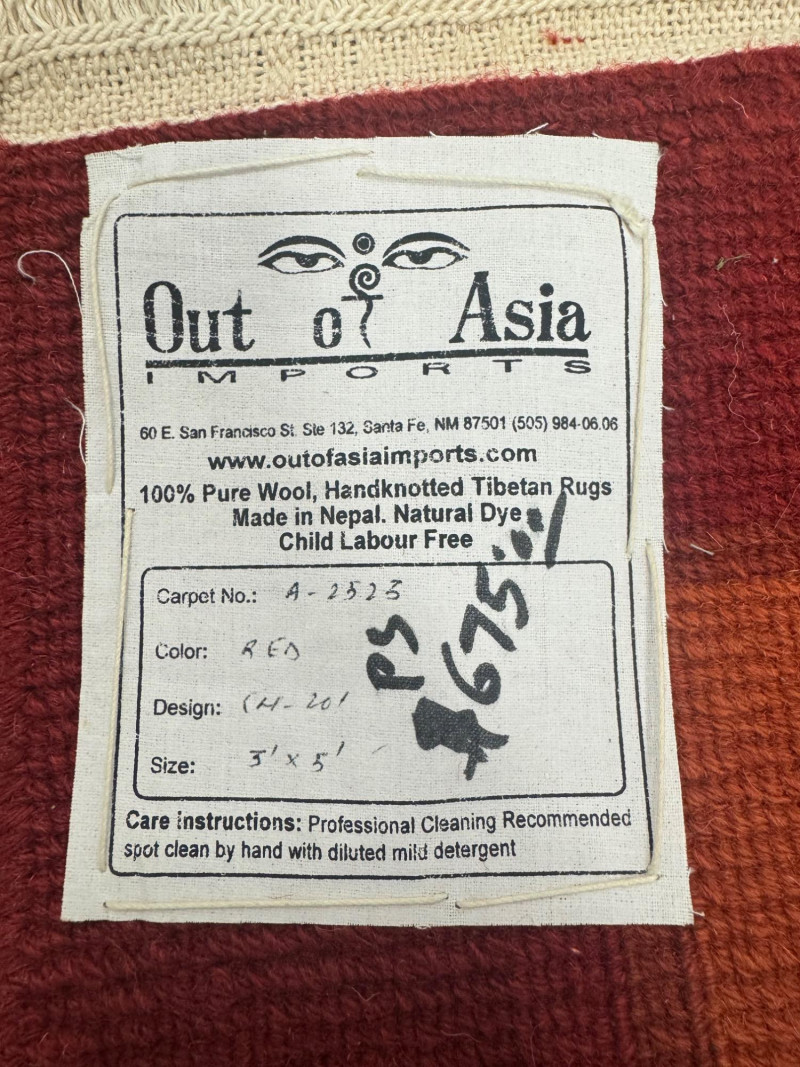 Out of Asia
IMPORTS
60 E. San Francisco St. Ste 132, Santa Fe, NM 87501 (505) 984-06.06
www.outofasiaimports.com
100% Pure Wool, Handknotted Tibetan Rugs
Made in Nepal. Natural Dye
Child Labour Free
Carpet No.: A-2525
Color: RED
Design: CH-201
Size: 3' x 5'
PS
$675.00
Care instructions: Professional Cleaning Recommended
spot clean by hand with diluted mild detergent